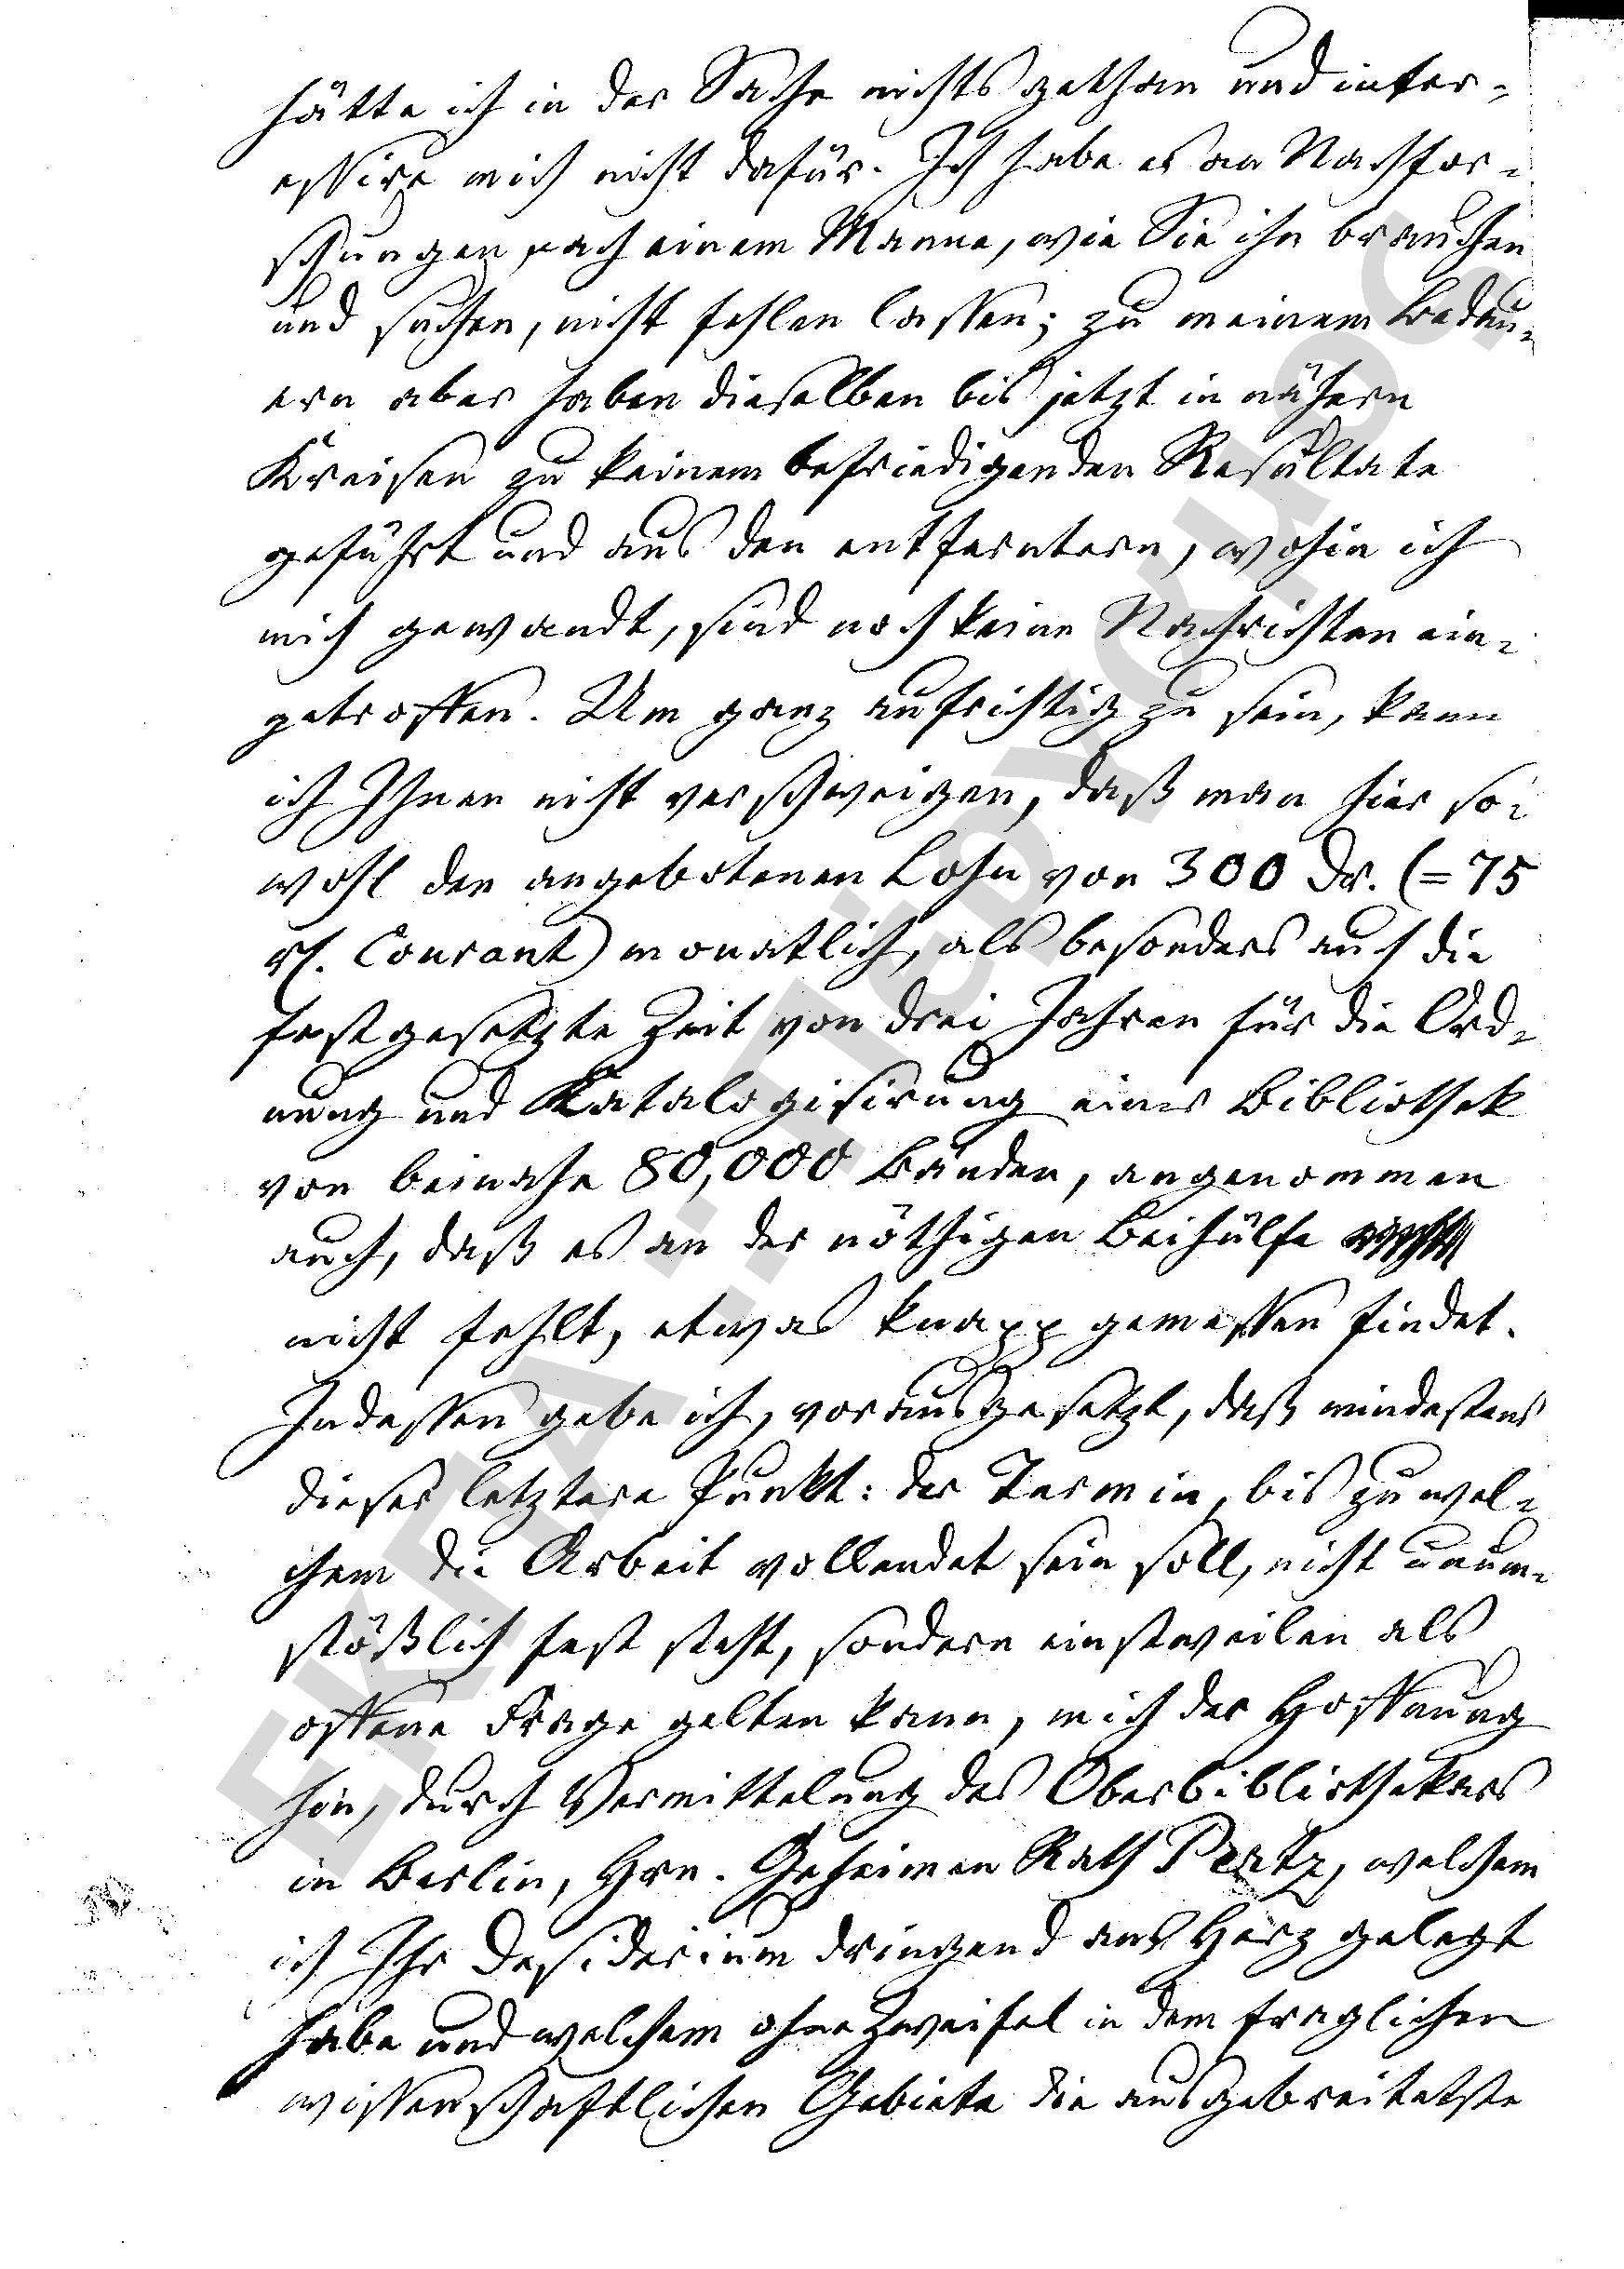 hätte ich in der Sache nichts gethan und inter-
essire mich nicht dafür. Ich habe es an Nachfor-
schungen nach einem Manne, wie Sie ihn brauchen
und suchen, nicht fehlen lassen; zu meinem Bedau-
ern aber haben dieselben bis jetzt in nähern
Kreisen zu keinem befriedigenden Resultate
geführt und aus den entferntern, wohin ich
mich gewandt, sind noch keine Nachrichten ein-
getroffen. Um ganz aufrichtig zu sein, kann
ich Ihnen nicht verschweigen, daß man hier so-
wohl den angebotenen Lohn von 300 Dr. (= 75
rl. Courant) monatlich, als besonders auch die
festgesetzte Zeit von drei Jahren für die Ord-
nung und Katalogisirung einer Bibliothek
von beinahe 80,000 Bänden, angenommen
auch, daß es an der nöthigen Beihülfe
nicht fehlt, etwas knapp gemessen findet.
Indessen gebe ich, vorausgesetzt, daß mindestens
dieser letztere Punkt: der Termin, bis zu wel-
chem die Arbeit vollendet sein soll, nicht unum-
stößlich fest steht, sondern einstweilen als
offene Frage gelten kann, mich der Hoffnung
hin, durch Vermittelung des Oberbibliothekars
in Berlin, Hrn. Geheimen Rath Pertz, welchem
ich Ihr Desiderium dringend ans Herz gelegt
habe und welchem ohne Zweifel in dem fraglichen
wissenschaftlichen Gebiete die ausgebreitetste